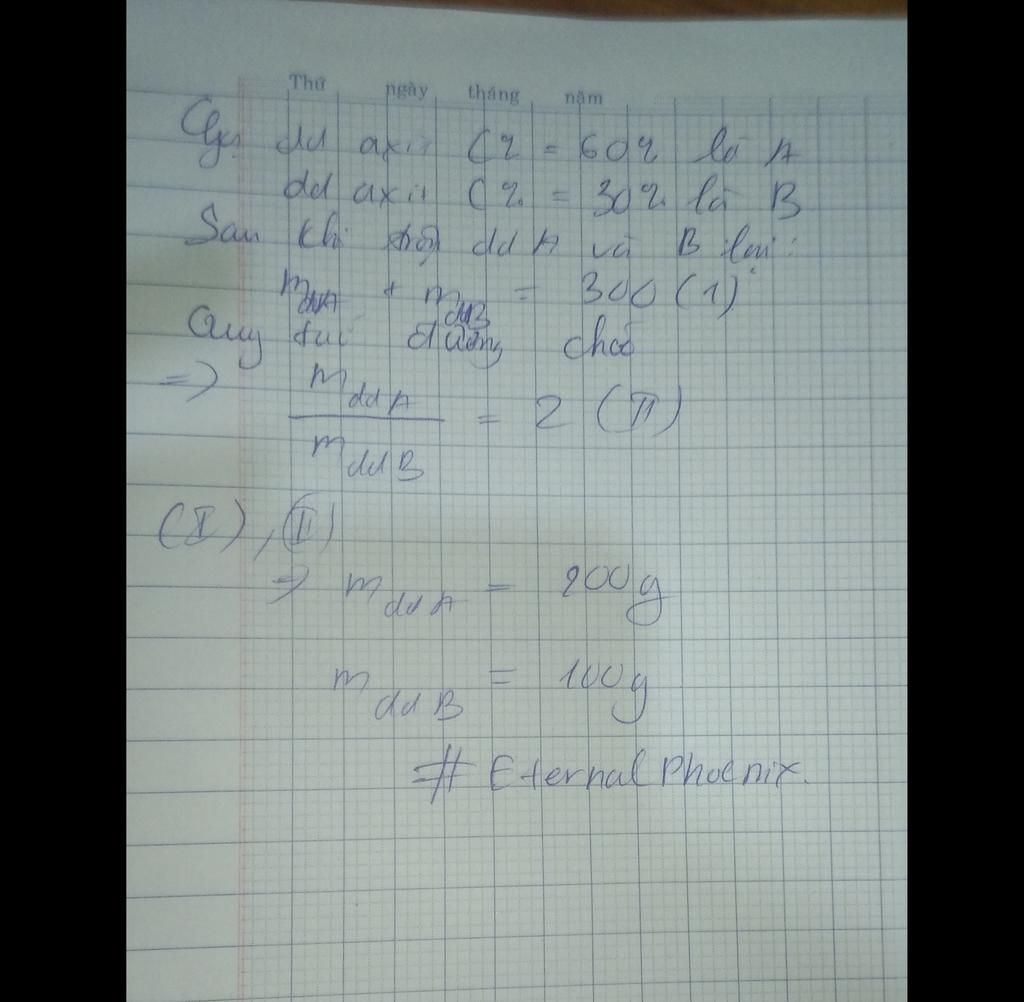 Thứ ngày tháng năm
Gọi dd axit C% = 60% là A
dd axit C% = 30% là B
Sau khi trộn dd A và B lại:
m ddA + m ddB = 300 (1)
Quy tắc đường chéo
=> m ddA / m ddB = 2 (II)
(I), (II)
=> m ddA = 200g
m ddB = 100g
# Eternal Phoenix.